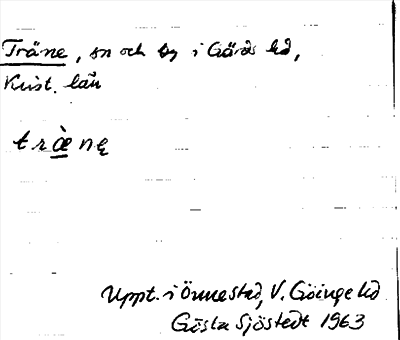 Träne, sn och by i Gärds hd,
Krist. län
træ̀nę
Uppt. i Önnestad, V. Göinge hd
Gösta Sjöstedt 1963